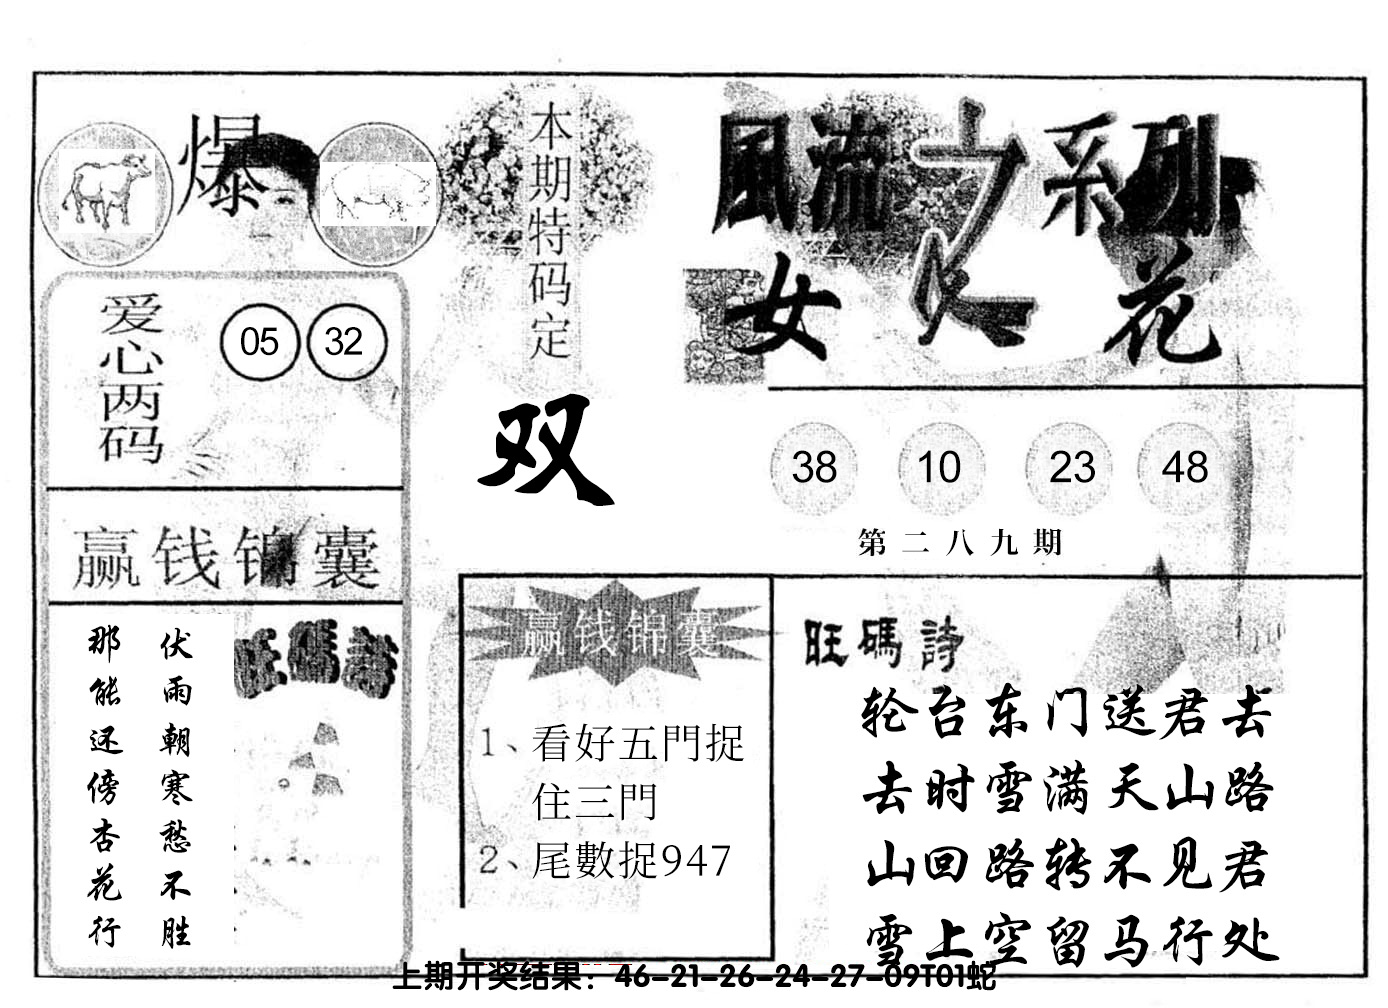 爆
爱心两码
05 32
赢钱锦囊
伏雨朝寒愁不胜
那能还傍杏花行
旺碼詩
本期特码定
双
風流之系列
女人花
38 10 23 48
第二八九期
赢钱锦囊
1、看好五門捉
住三門
2、尾數捉947
旺碼詩
轮台东门送君去
去时雪满天山路
山回路转不见君
雪上空留马行处
上期开奖结果：46-21-26-24-27-09T01蛇